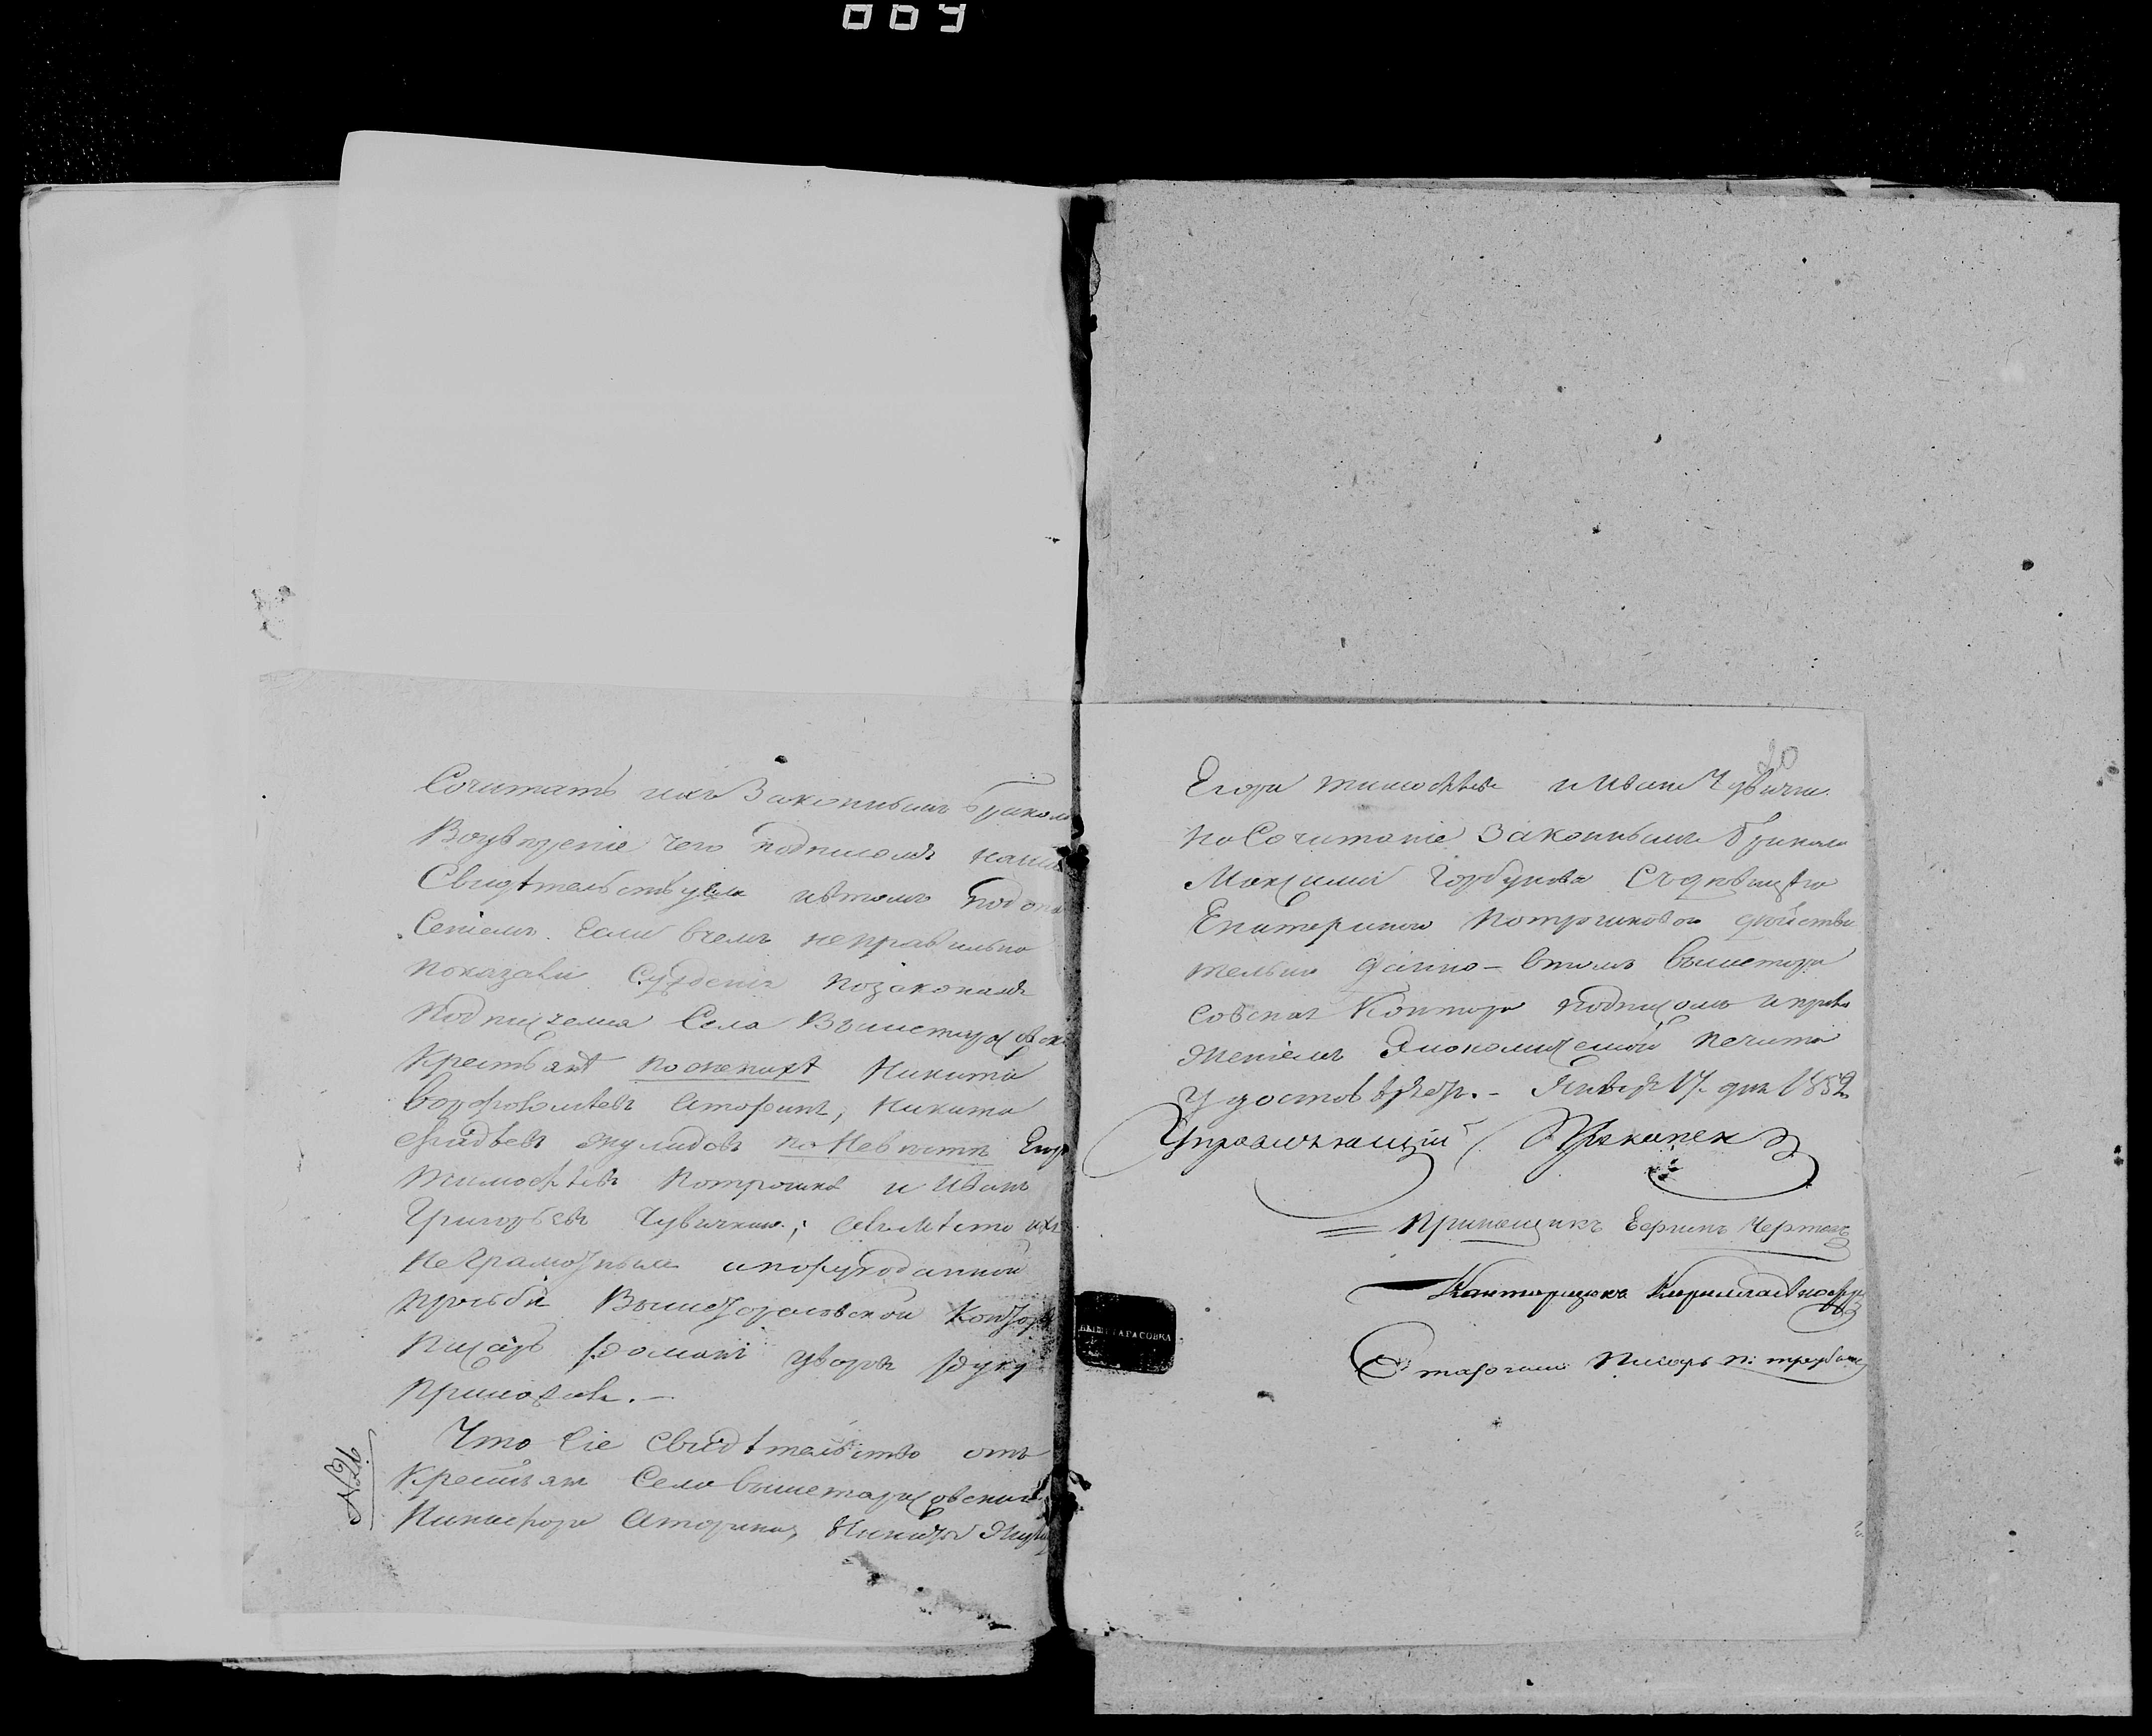 009
Сочитать ихъ Законнымъ бракомъ
Воувѣреніе чего подписомъ нашимъ
Свидѣтельствуемъ ивтомъ подопа
сеніемъ. Если вчемъ неправильно
показали Суждены позаконамъ
Подписуемся Села Вышетарасовки
Крестьяне поженихѣ Никита
Атофинъ, Никита
поневѣстѣ Егоръ
Тимофѣевъ Потрошковъ и Иванъ
Григорьевъ Чувичкинъ; авмѣсто ихъ
Неграмотныхъ ипорукоданной
прозьбѣ Вышетарасовской Конторы
Писарь Романъ Уваровъ руку
приложилъ.-
№ 26
Что Сіе Свидѣтельство отъ
Крестьянъ Села Вышетарасовки
Никифора Аторина, Никиты
20
Егора Тимофѣева и Ивана Чувички
на Сочитаніе Законнымъ бракомъ
Максима Горбунова Съдѣвицѣю
Екатериною Потрошковой дѣйстви
тельно дано - втомъ Вышетара
совская Контора подписомъ и прило
женіемъ Экономической печати
удостовѣряетъ.- Января 17. дня 1852
Управляющій Прокопек
Прикащикъ
Канторщикъ
Старшій Писарь
ВЫШЕТАРАСОВКА